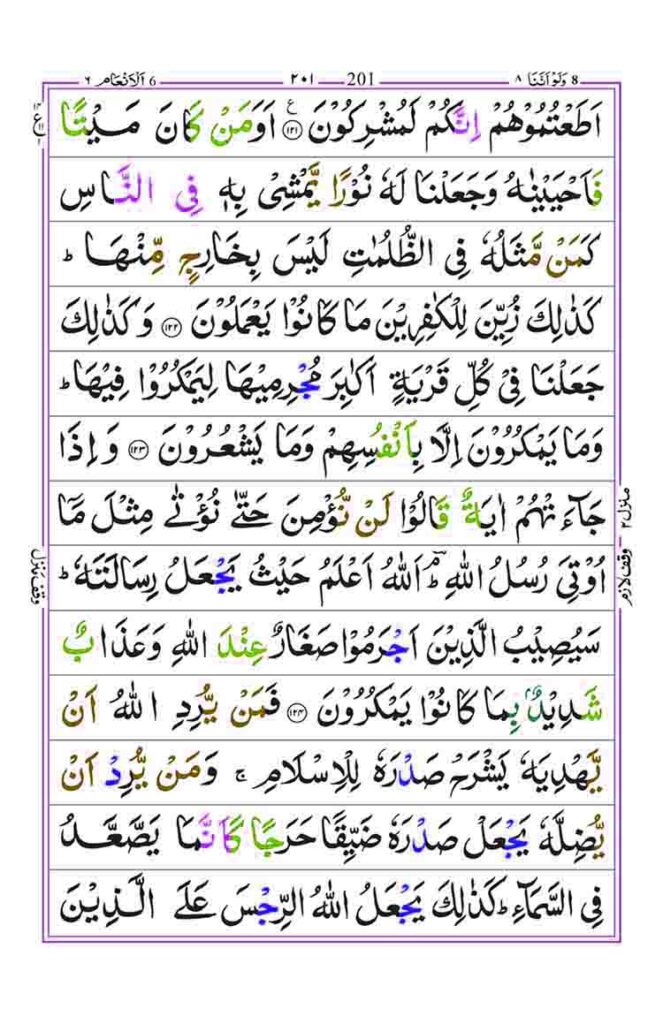 8 وَلَوْ اَنَّنَا ٨ 201 ٢٠١ 6 اَلْاَنْعَام ٦
اَطَعْتُمُوْهُمْ اِنَّكُمْ لَمُشْرِكُوْنَ ۝١٢١ اَوَمَنْ كَانَ مَيْتًا
فَاَحْيَيْنٰهُ وَجَعَلْنَا لَهٗ نُوْرًا يَّمْشِيْ بِهٖ فِي النَّاسِ
كَمَنْ مَّثَلُهٗ فِي الظُّلُمٰتِ لَيْسَ بِخَارِجٍ مِّنْهَا ؕ
كَذٰلِكَ زُيِّنَ لِلْكٰفِرِيْنَ مَا كَانُوْا يَعْمَلُوْنَ ۝١٢٢ وَكَذٰلِكَ
جَعَلْنَا فِيْ كُلِّ قَرْيَةٍ اَكٰبِرَ مُجْرِمِيْهَا لِيَمْكُرُوْا فِيْهَا ؕ
وَمَا يَمْكُرُوْنَ اِلَّا بِاَنْفُسِهِمْ وَمَا يَشْعُرُوْنَ ۝١٢٣ وَاِذَا
جَآءَتْهُمْ اٰيَةٌ قَالُوْا لَنْ نُّؤْمِنَ حَتّٰى نُؤْتٰى مِثْلَ مَآ
اُوْتِيَ رُسُلُ اللّٰهِ ؕۘ اَللّٰهُ اَعْلَمُ حَيْثُ يَجْعَلُ رِسَالَتَهٗ ؕ
سَيُصِيْبُ الَّذِيْنَ اَجْرَمُوْا صَغَارٌ عِنْدَ اللّٰهِ وَعَذَابٌ
شَدِيْدٌۢ بِمَا كَانُوْا يَمْكُرُوْنَ ۝١٢٤ فَمَنْ يُّرِدِ اللّٰهُ اَنْ
يَّهْدِيَهٗ يَشْرَحْ صَدْرَهٗ لِلْاِسْلَامِ ۚ وَمَنْ يُّرِدْ اَنْ
يُّضِلَّهٗ يَجْعَلْ صَدْرَهٗ ضَيِّقًا حَرَجًا كَاَنَّمَا يَصَّعَّدُ
فِي السَّمَآءِ ؕ كَذٰلِكَ يَجْعَلُ اللّٰهُ الرِّجْسَ عَلَى الَّذِيْنَ
منزل ٢
وقف لازم
وقف منزل